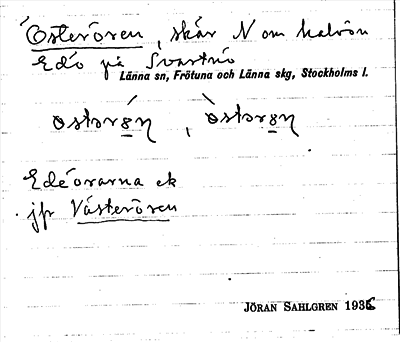 Österören, skär N om halvön
Edö på Svartnö
Länna sn, Frötuna och Länna skg, Stockholms l.
Edeörarna ek
jfr Västerören
JÖRAN SAHLGREN 1936